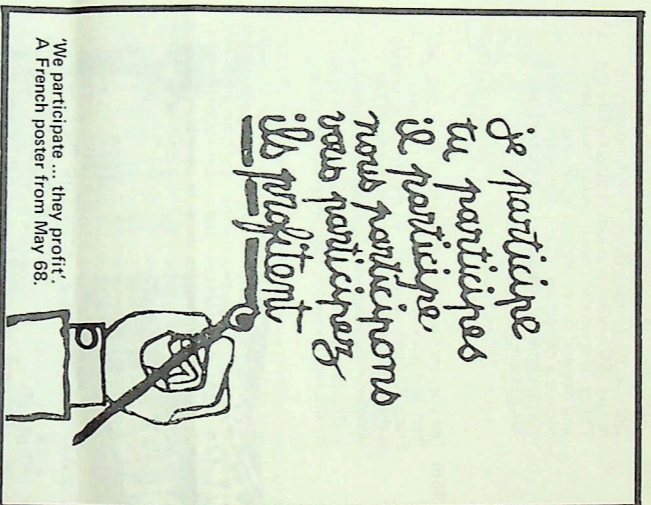 je participe
tu participes
il participe
nous participons
vous participez
ils profitent
'We participate ... they profit'.
A French poster from May 68.